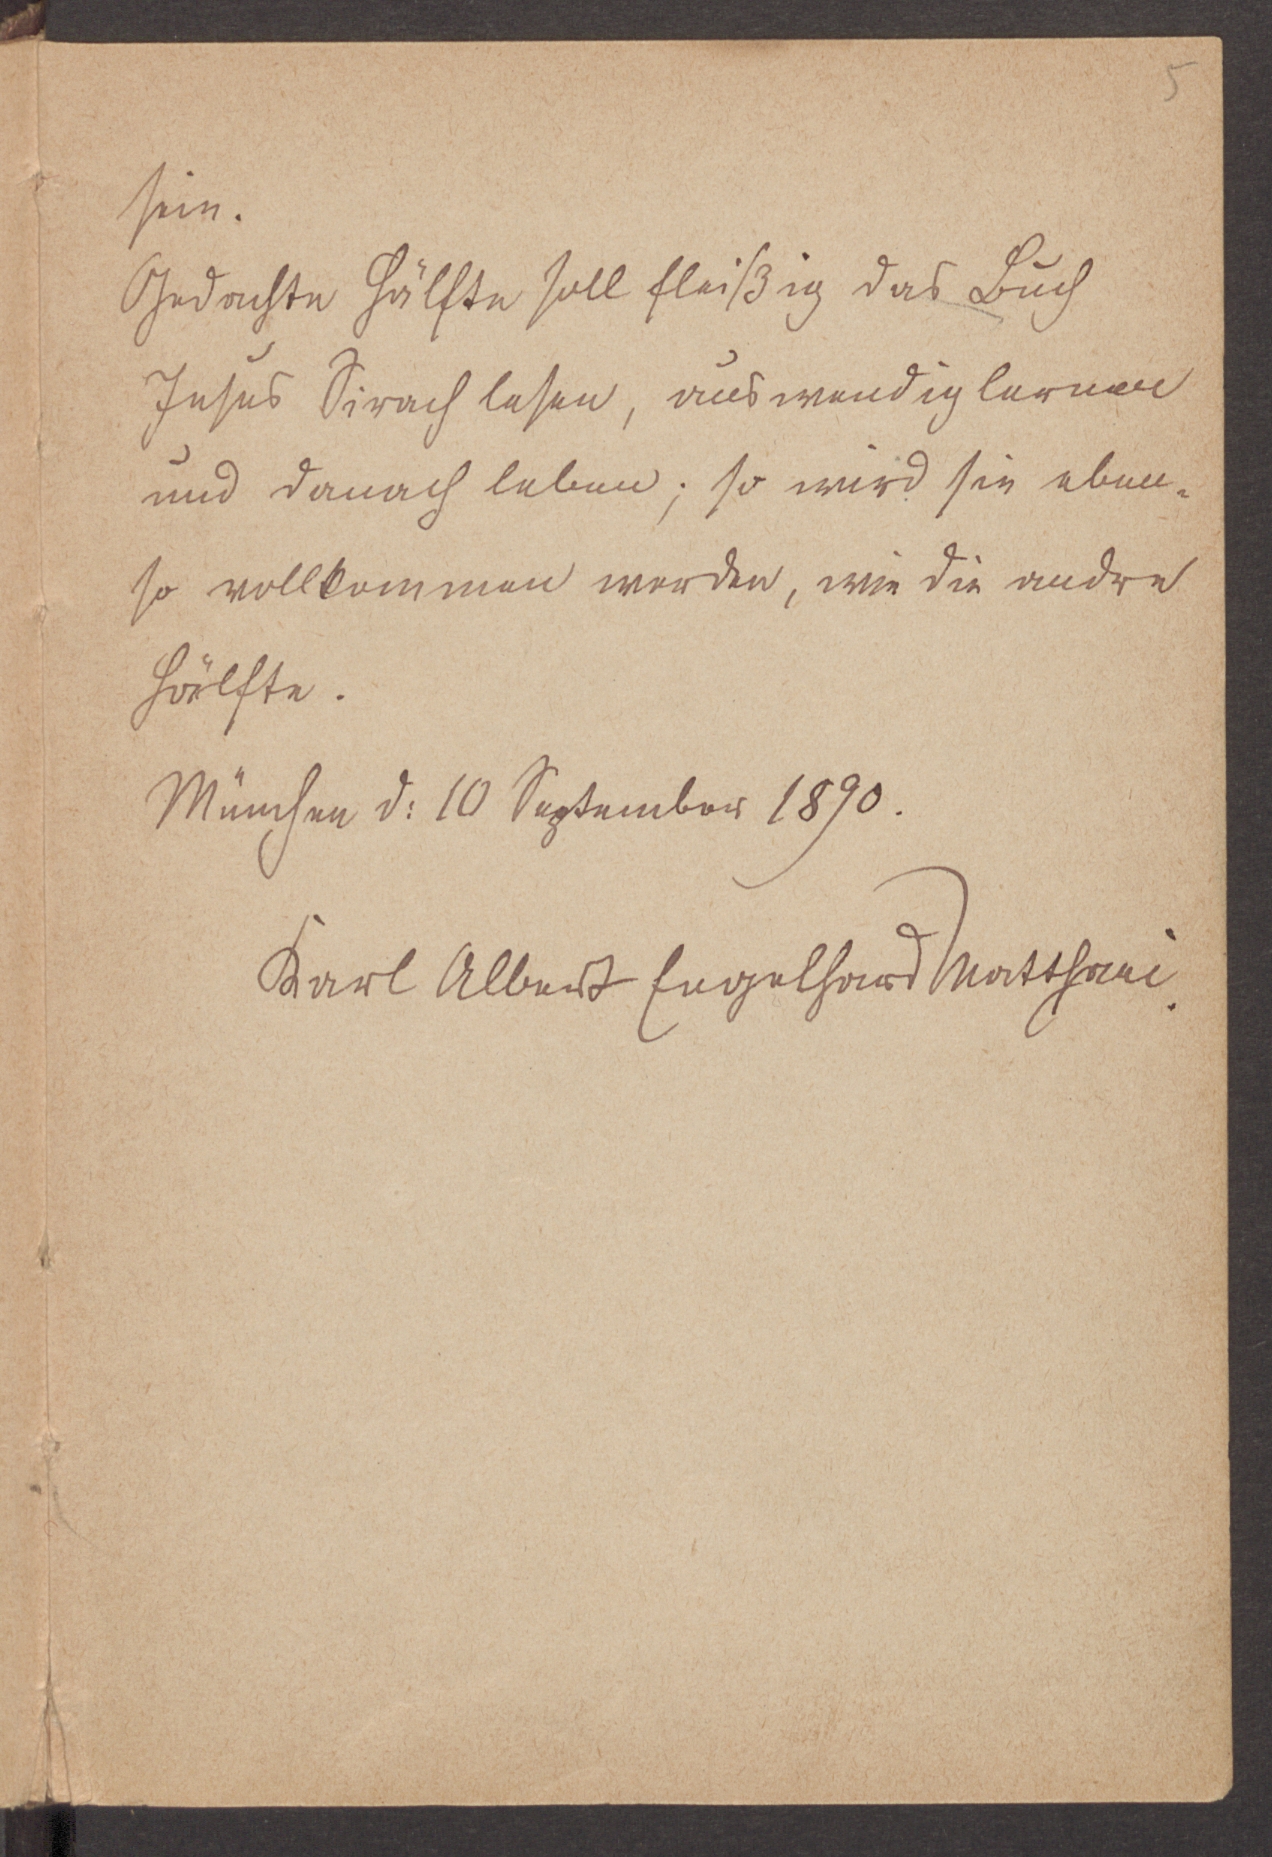 5
sein.
Gedachte Hälfte soll fleißig das Buch
Jesus Sirach lesen, auswendig lernen
und danach leben; so wird sie eben-
so vollkommen werden, wie die andre
Hälfte.
München d: 10 September 1890.
Karl Albert Engelhard Matthaei.